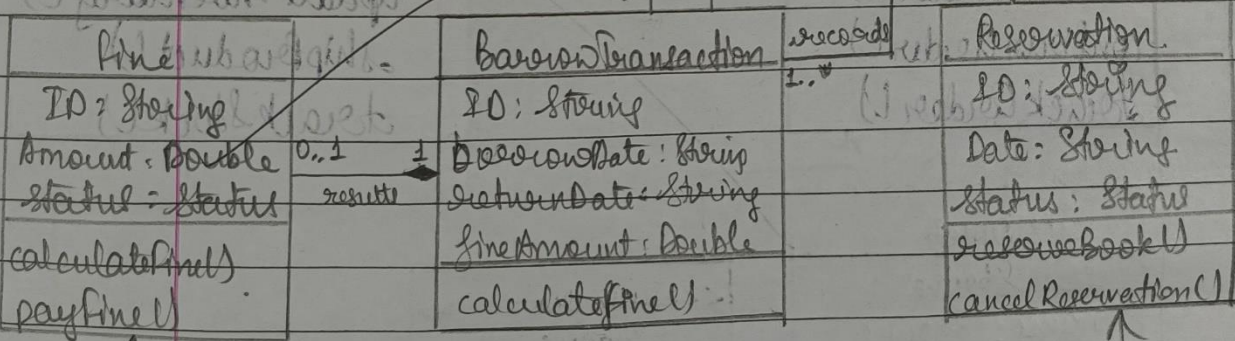 Fine
ID: String
Amount: Double
status: Status
calculateFine()
payFine()
0..1
1
results
BorrowTransaction
ID: String
borrowDate: String
returnDate: String
fineAmount: Double
calculateFine()
records
1..*
Reservation
ID: String
Date: String
status: Status
reserveBook()
cancelReservation()